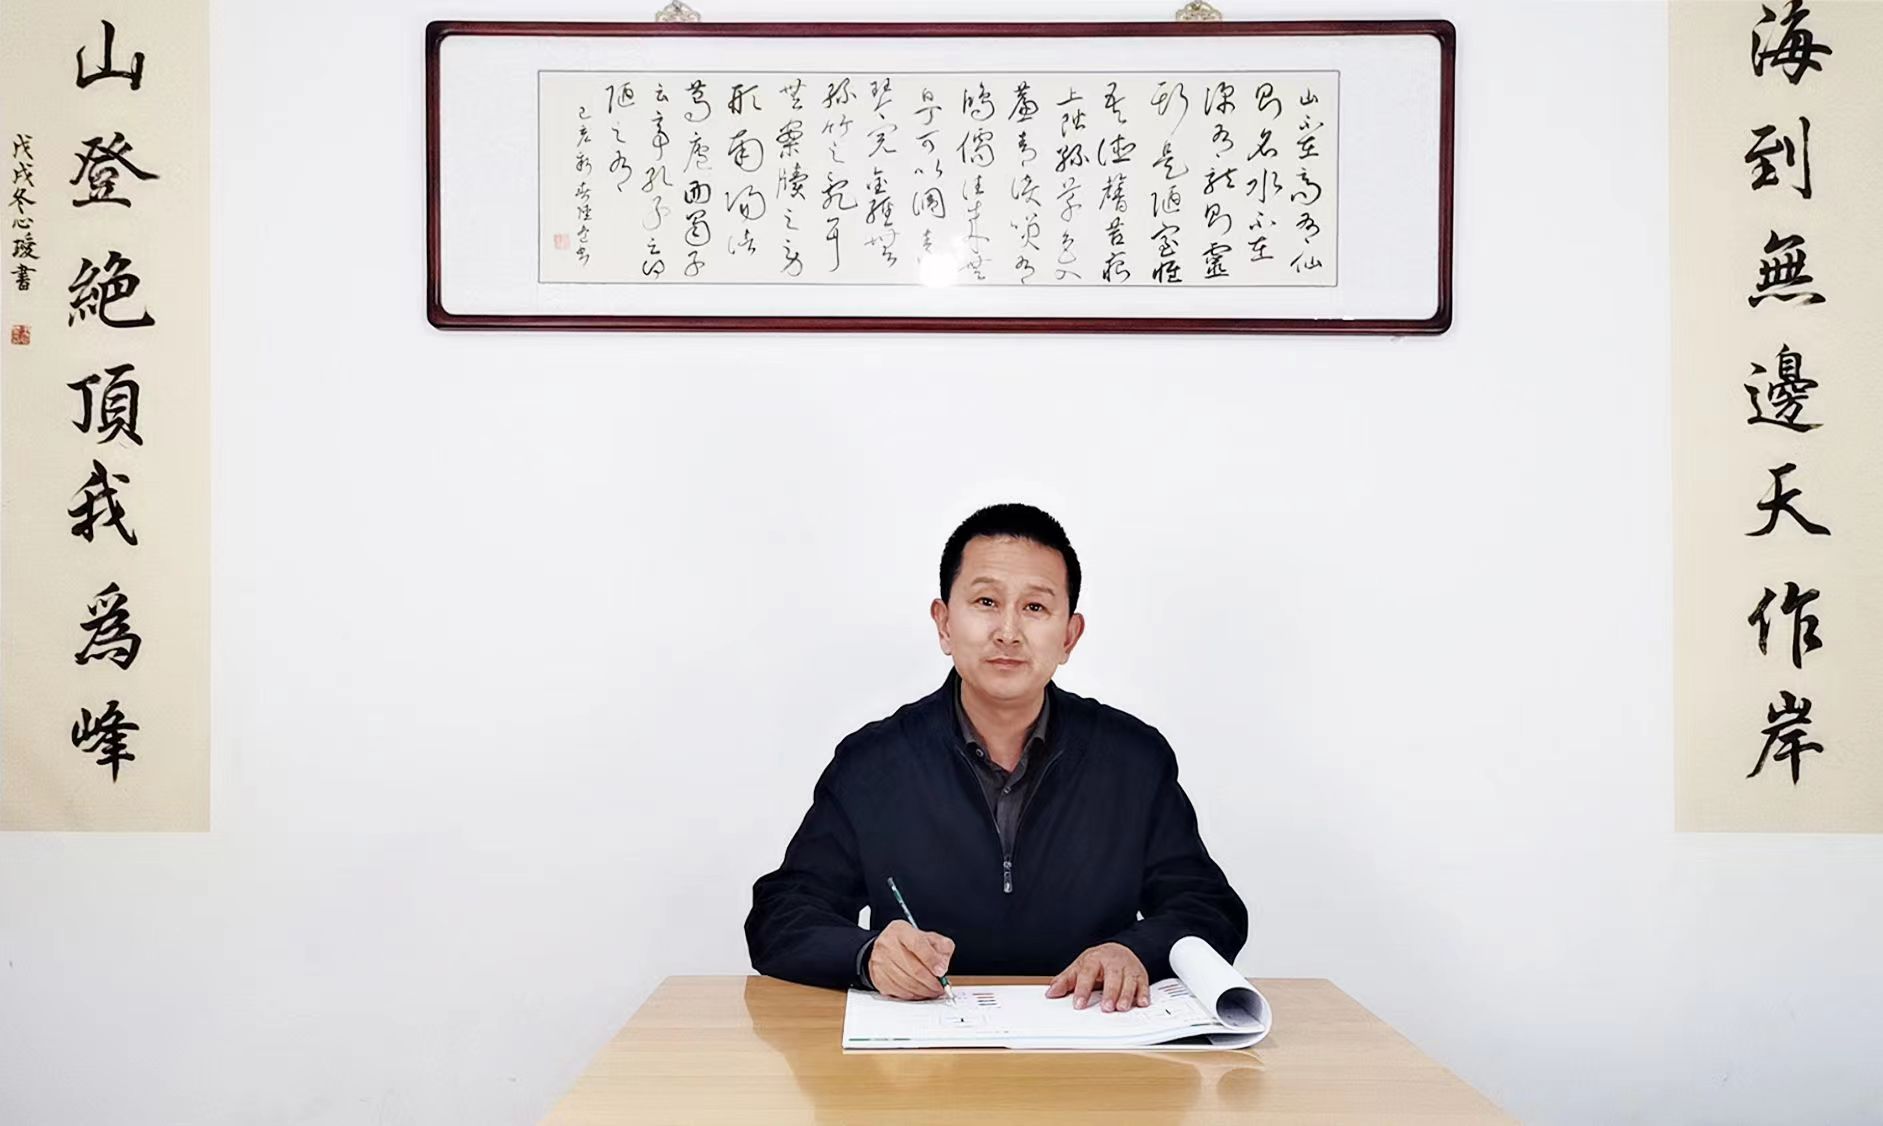 海到無邊天作岸
山不在高有仙
則名水不在
深有龍則靈
斯是陋室惟
吾德馨苔痕
上階綠草色入
簾青談笑有
鴻儒往來無
白丁可以調素
琴閱金經無
絲竹之亂耳
無案牘之勞
形南陽諸
葛廬西蜀子
云亭孔子云何
陋之有
己亥新春
山登絕頂我為峰
戊戌冬心璦書